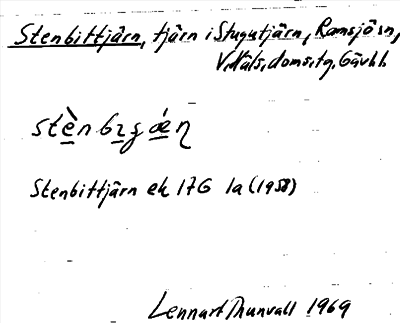 Stenbittjärn, tjärn i Stugutjärn, Ramsjö sn,
V. Häls. doms:tg. Gävl.
stè̱nbɪ̱gǽ̱ɳ
Stenbittjärn ek 17G 1a (1958)
Lennart Thunvall 1969